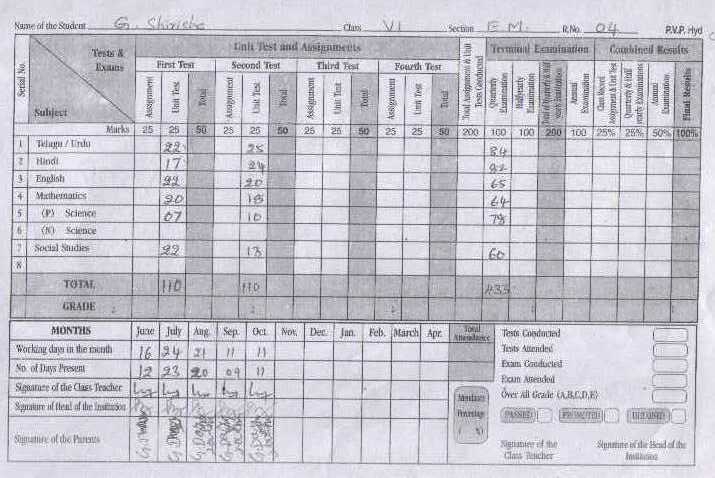 Name of the Student G. Shirisha Class VI Section E.M. R.No. 04 P.V.P. Hyd
Serial No. Tests & Exams Subject Unit Test and Assignments Total Assignment & Unit Tests Conducted Terminal Examination Combined Results
First Test Second Test Third Test Fourth Test
Assignment Unit Test Total Assignment Unit Test Total Assignment Unit Test Total Assignment Unit Test Total Quarterly Examination Halfyearly Examination Total of Quarterly & Half yearly Examination Annual Examination Class Record Assignment & Unit Test Quarterly & Half yearly Examinations Annual Examination Final Results
Marks 25 25 50 25 25 50 25 25 50 25 25 50 200 100 100 200 100 25% 25% 50% 100%
1 Telugu / Urdu 22 25 84
2 Hindi 17 24 82
3 English 22 20 65
4 Mathematics 20 18 64
5 (P) Science 07 10 78
6 (N) Science
7 Social Studies 22 13 60
8
TOTAL 110 110 433
GRADE
MONTHS June July Aug. Sep. Oct. Nov. Dec. Jan. Feb. March Apr. Total Attendance
Working days in the month 16 24 21 11 11
No. of Days Present 12 23 20 09 11
Signature of the Class Teacher
Signature of Head of the Institution
Signature of the Parents
Attendance Percentage ( %)
Tests Conducted
Tests Attended
Exam Conducted
Exam Attended
Over All Grade (A,B,C,D,E)
PASSED PROMOTED DETAINED
Signature of the Class Teacher Signature of the Head of the Institution